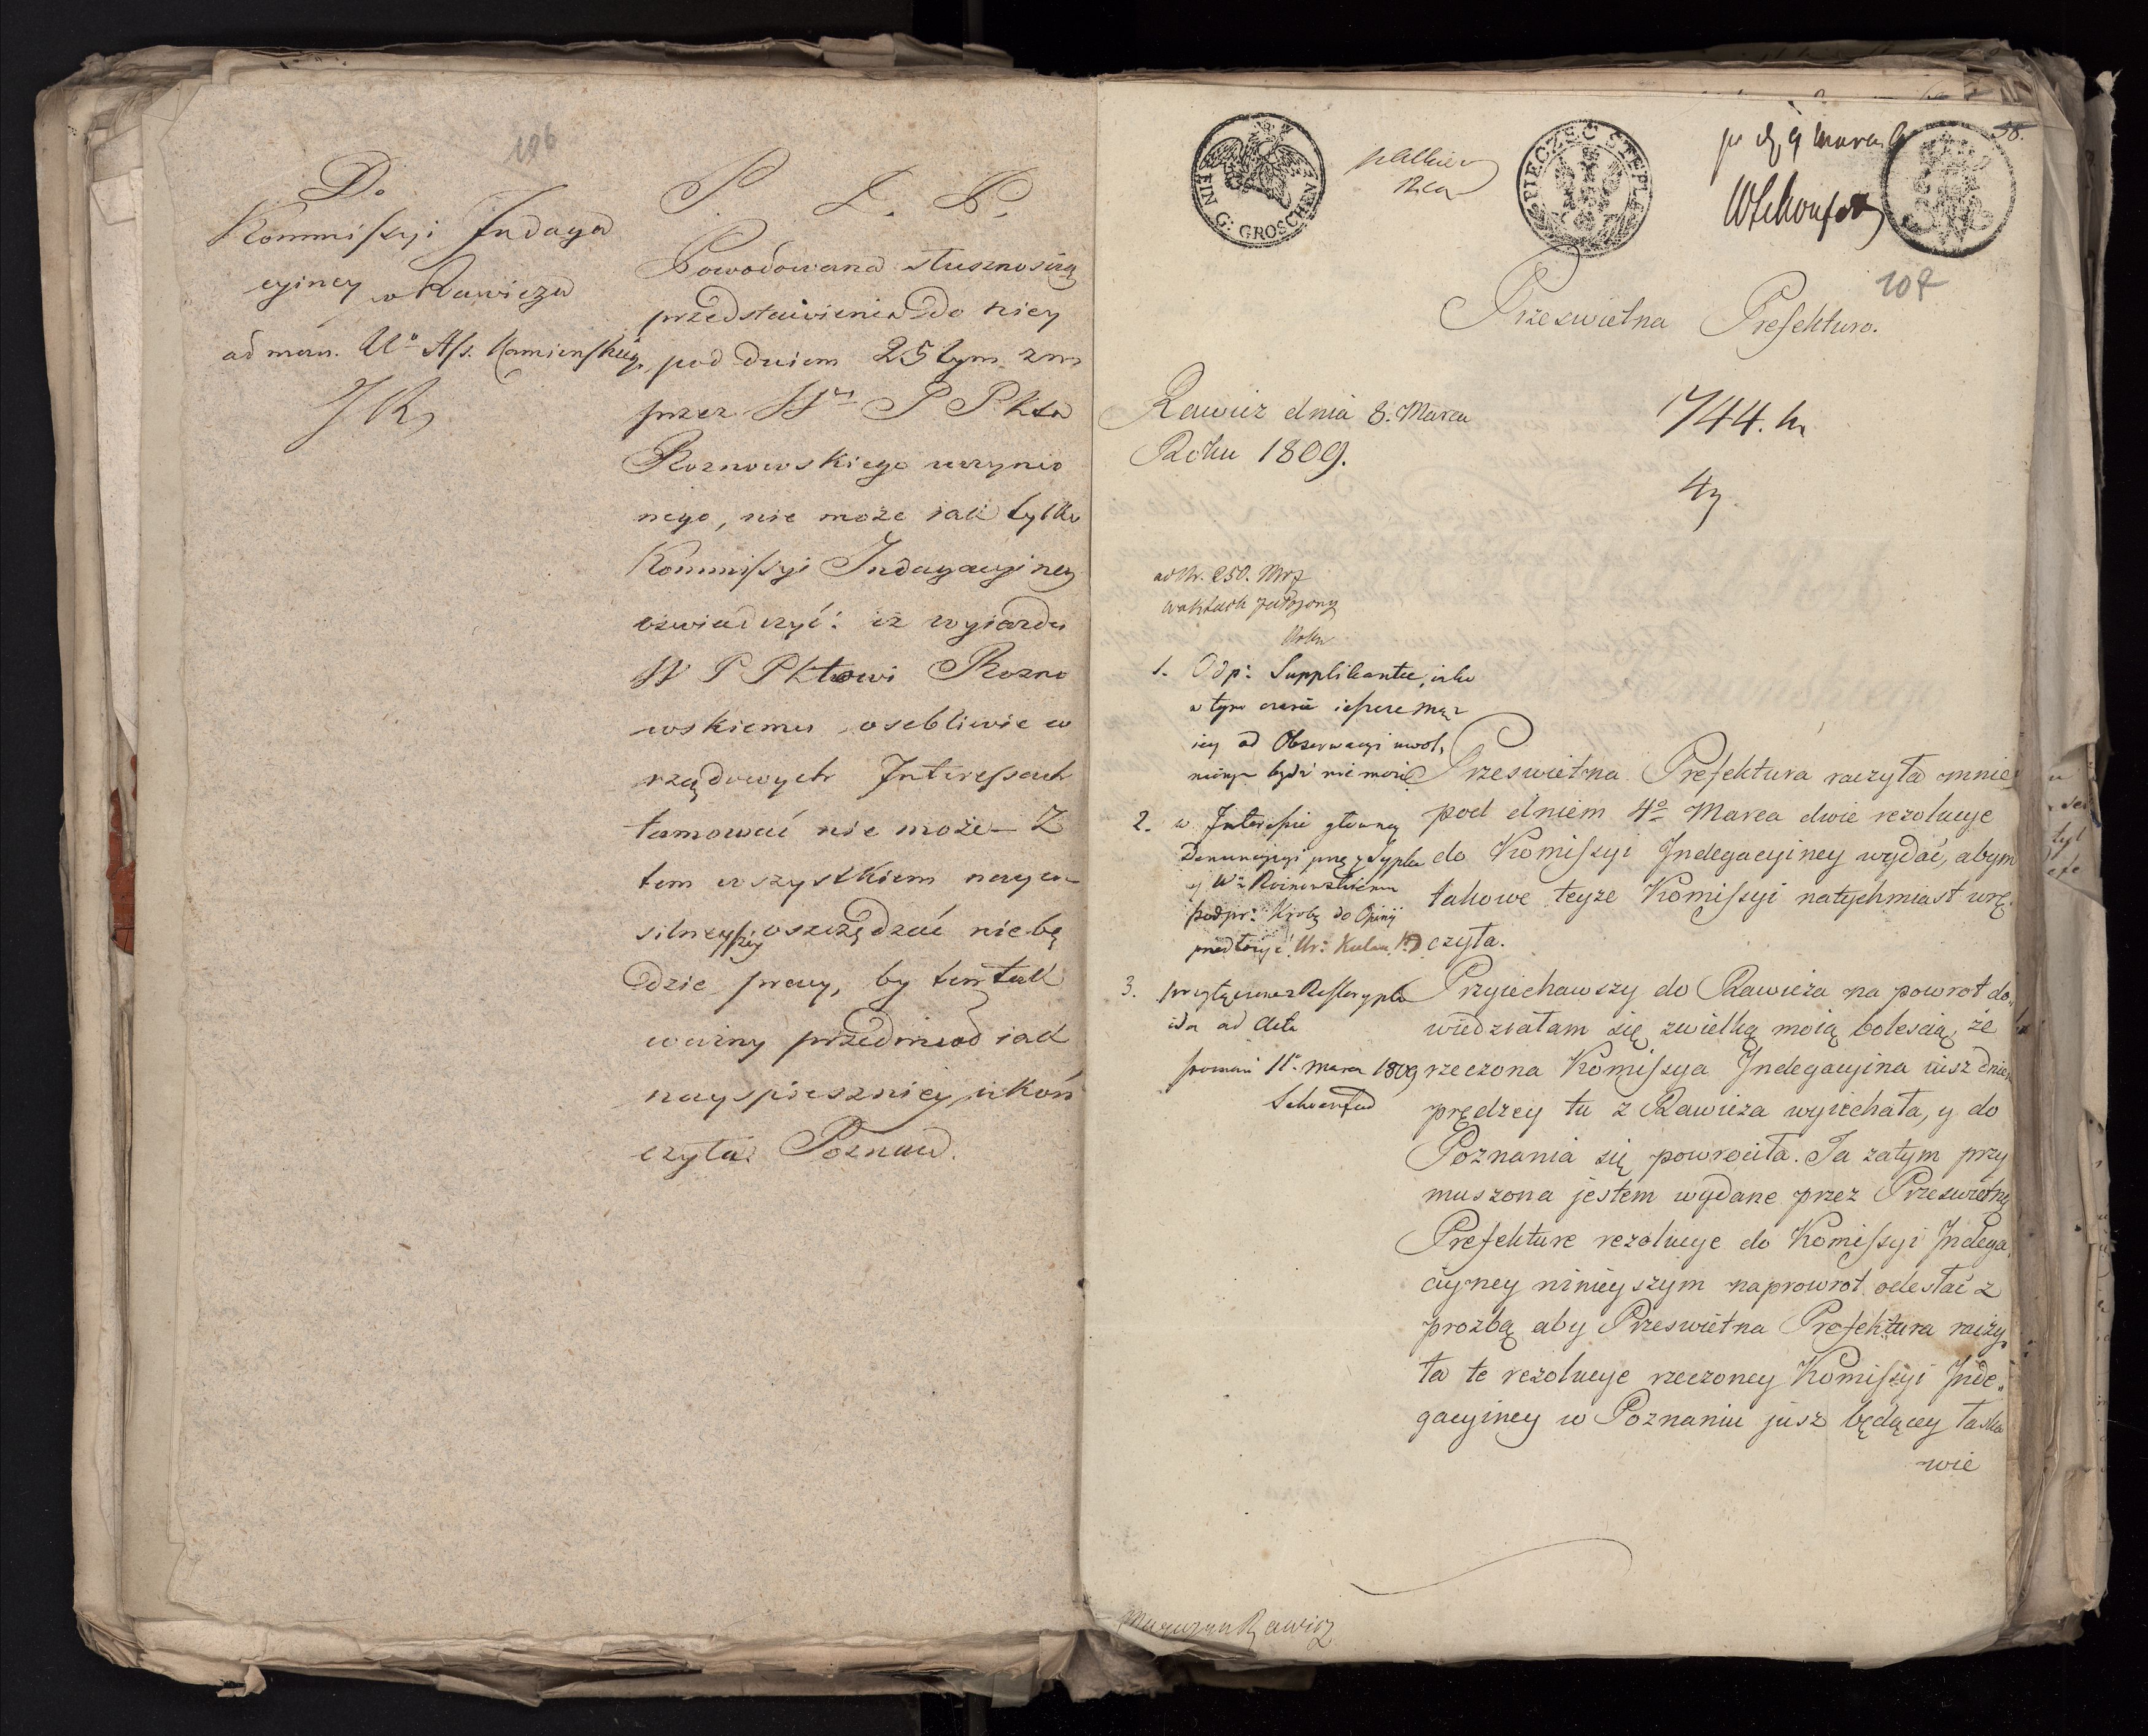 106
Do
Kommissyi Indaga
cyiney w Rawiczu
ad man. Ass. Kamienskieg.
P. D. P.
Powodowana słusznością
przedstawienia do niey
pod dniem 25 tym zm
przez P P kta
Roznowskiego uczynio
nego, nie może iak tylko
Kommissyi Indagacyiney
oświadczyć: iż wyiazdu
W P Pktowi Rozno
wskiemu osobliwie w
rządowych Interessach
tamować nie może – Z
tem wszystkiem nayu-
silneyszey oszczędzać nie bę
dzie pracy, by ten tak
ważny przedmiot iak
nayspieszniey ukoń
czyła. Poznań.
EIN G: GROSCHEN
PIECZĘC STEPLO
58.
107
Przeswietna Prefekturo.
Rawicz dnia 8. Marca
Roku 1809.
1744.
ad Nr. 250.
w aktach
1. Odp: Supplikantce, iako
w tym czasie ieszcze mąż
iey od Obserwacyi uwol,
niony bydź nie może
2. w Interesie główney
Denuncyacyi przez
podpr: do Opinij
przedłożyć
3. przyłączone Reskrypta
ida ad Acta
poznań 11. marca 1809
Przeswietna Prefektura raczyła mnie
pod dniem 4o Marca dwie rezolucye
do Komissyi Indegacyiney wydać, abym
takowe teyze Komissyi natychmiast wrę
czyła.
Przyiechawszy do Rawicza na powrot do„
wiedziałam się zwielką moią bolescią, że
rzeczona Komissya Indegacyina iusz dniem
prędzey tu z Rawicza wyiechała, y do
Poznania się powrociła. Ja zatym przy
muszona jestem wydane przez Przeswietną
Prefekture rezolucye do Komissyi Indega„
cyiney ninieyszym naprowrot odesłać z
prozbą aby Przeswietna Prefektura raczy„
ła te rezolucye rzeczoney Komissyi Inde„
gacyiney w Poznaniu jusz będącey łaska
wie